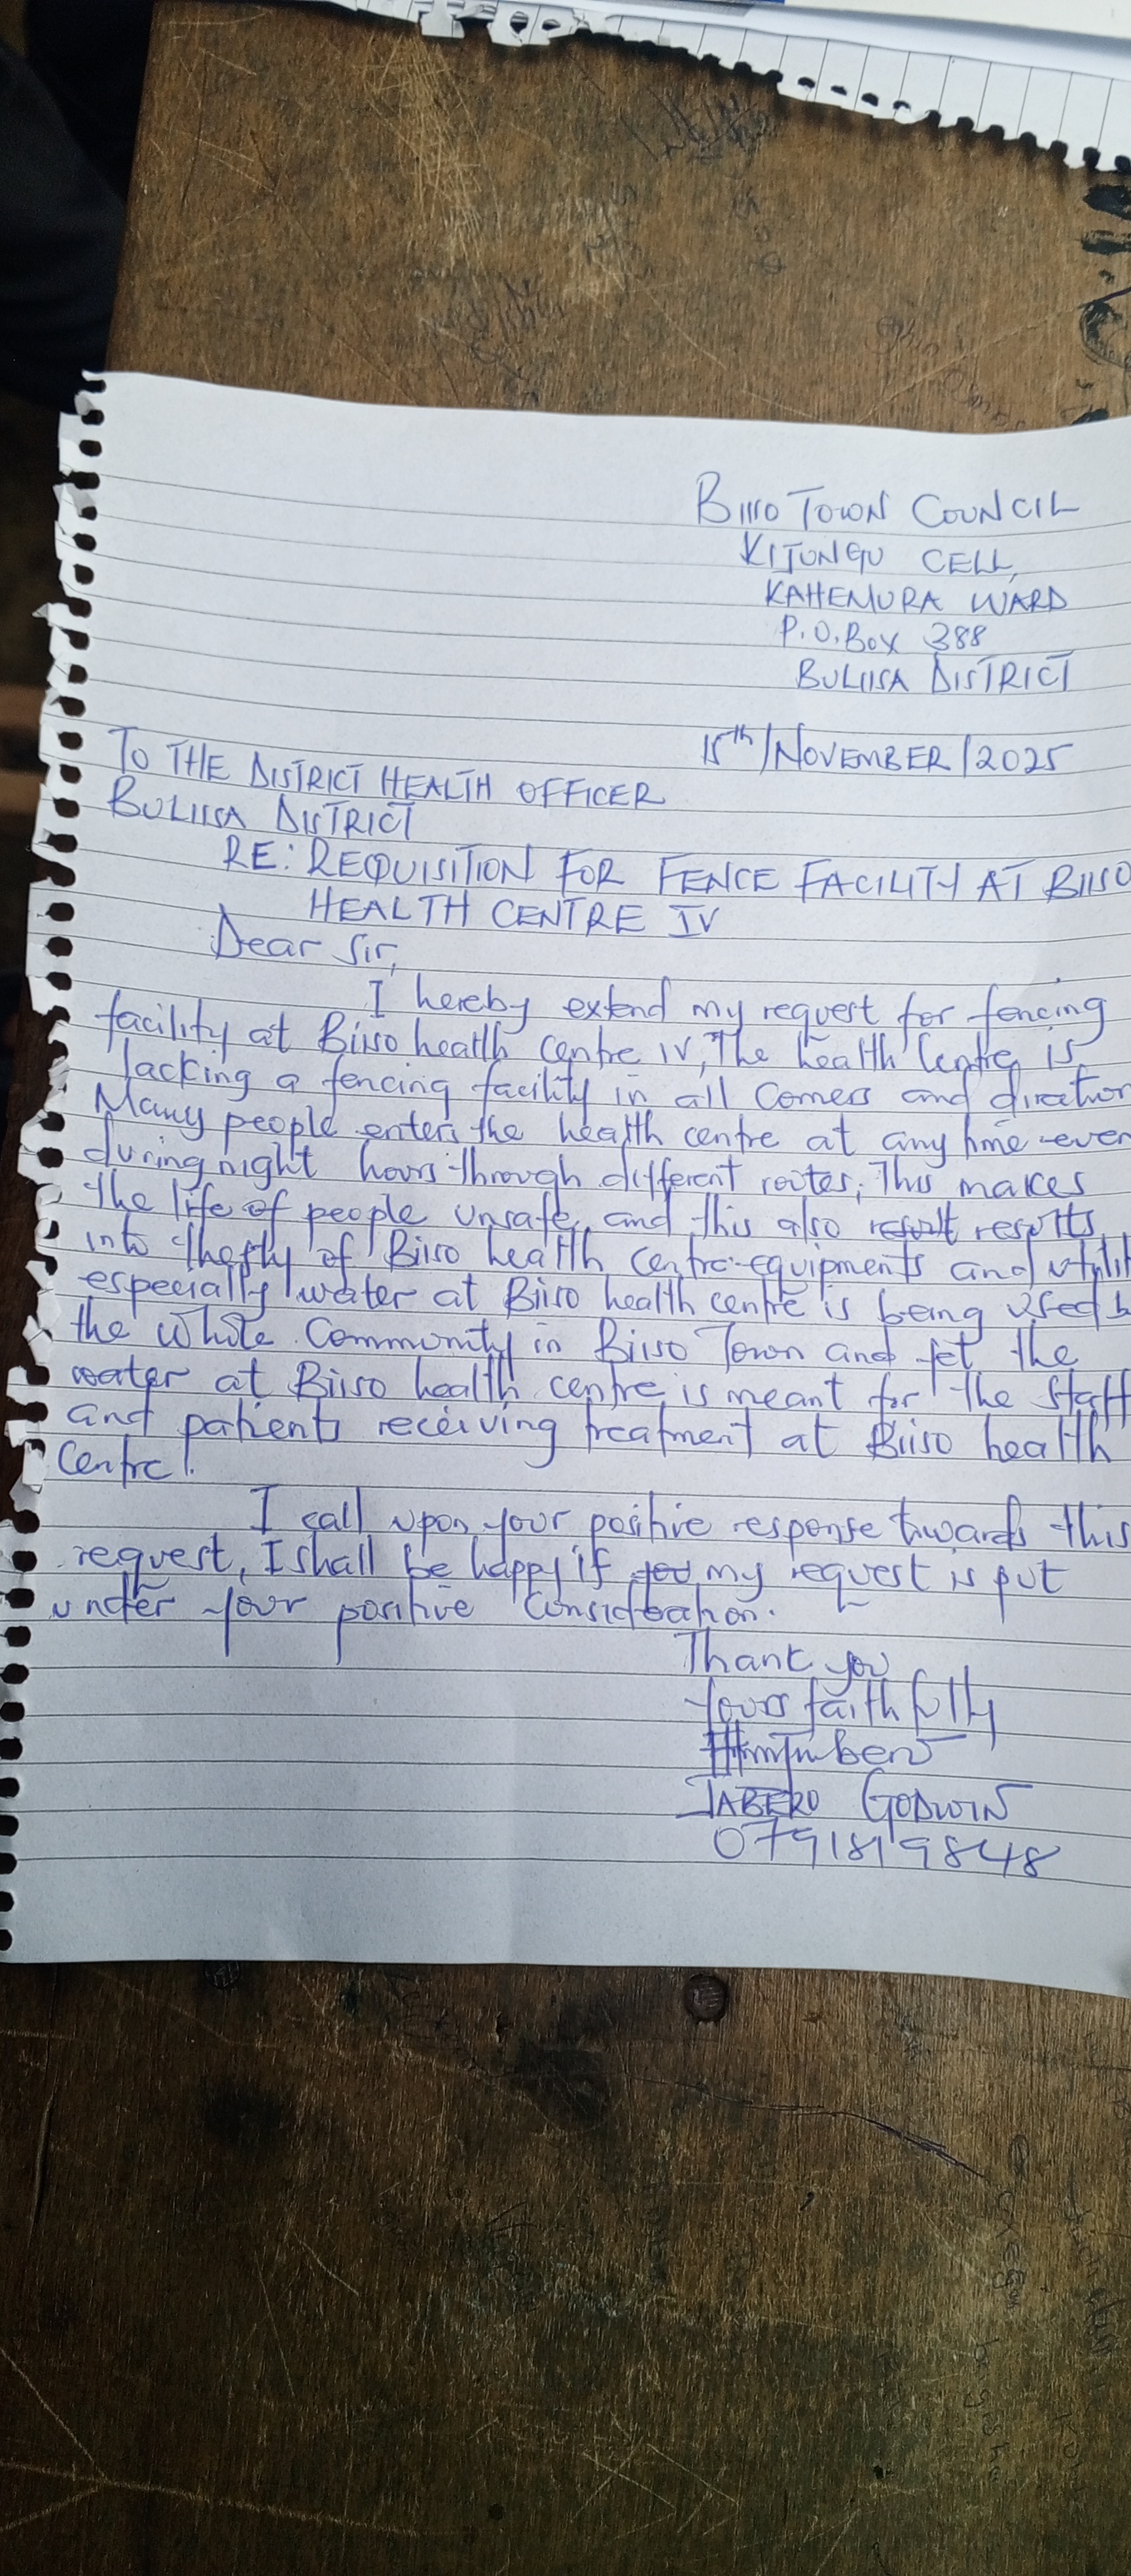 BIISO TOWN COUNCIL
KIJUNGU CELL,
KAHEMURA WARD
P.O.BOX 388
BULIISA DISTRICT
15th/NOVEMBER/2025
TO THE DISTRICT HEALTH OFFICER
BULIISA DISTRICT
RE: REQUISITION FOR FENCE FACILITY AT BIISO
HEALTH CENTRE IV
Dear Sir,
I hereby extend my request for fencing
facility at Biiso health centre IV, The health Centre is
lacking a fencing facility in all corners and direction
Many people enters the health centre at any time even
during night hours through different routes, This makes
the life of people unsafe and this also result results
into thefty of Biiso health centre equipments and utilit
especially water at Biiso health centre is being used b
the whole Community in Biiso Town and yet the
water at Biiso health centre is meant for the staff
and patients receiving treatment at Biiso health
Centre.
I call upon your positive response towards this
request, I shall be happy if you my request is put
under your positive consideration.
Thank you
Yours faithfully
JABERO GODWIN
0791819848